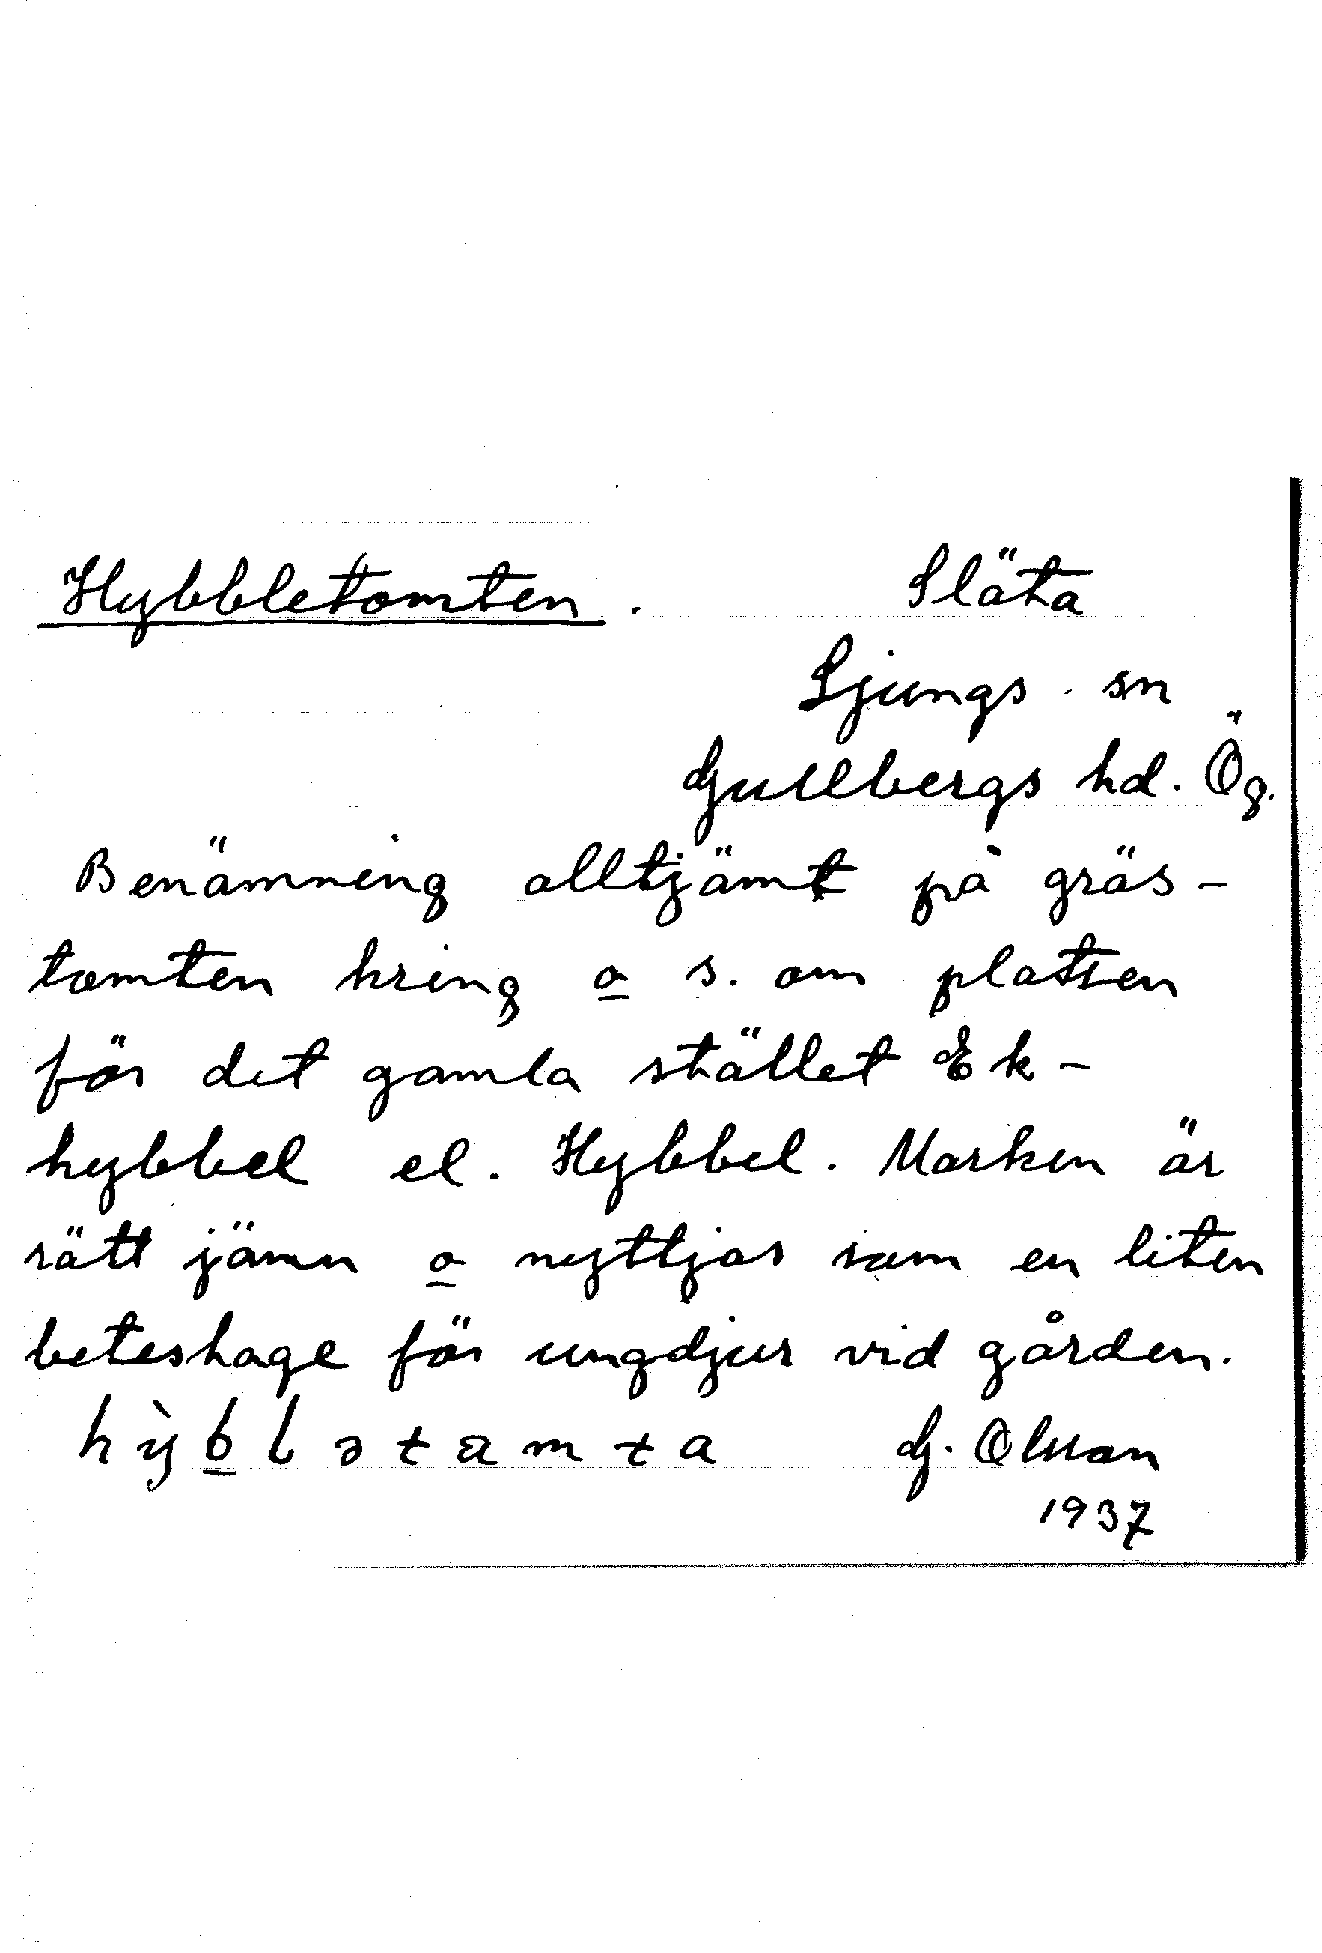 Hybbletomten. Släta
Ljungs sn
Gullbergs hd. Ög.
Benämning alltjämt på gräs-
tomten kring o s. om platsen
för det gamla stället Ek-
hybbel el. Hybbel. Marken är
rätt jämn o nyttjas som en liten
beteshage för ungdjur vid gården.
hỳblətamta G. Olsson
1937